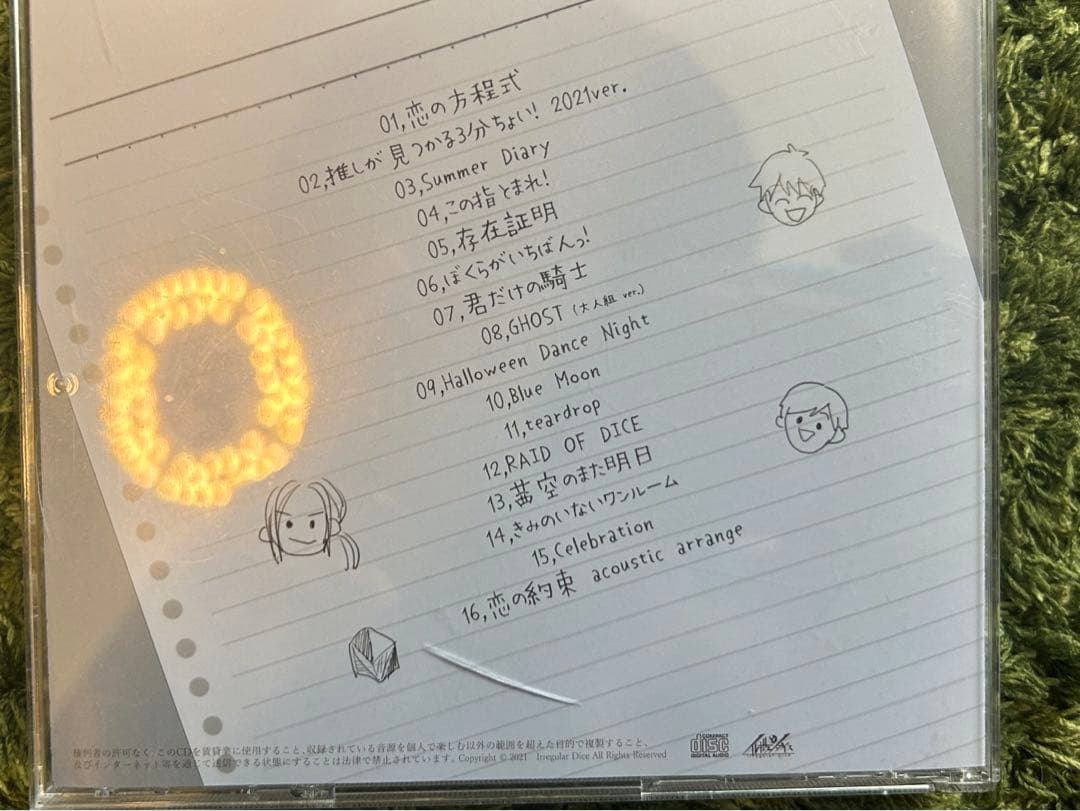 01,恋の方程式
02,推しが見つかる3分ちょい! 2021ver.
03,Summer Diary
04,この指とまれ!
05,存在証明
06,ぼくらがいちばんっ!
07,君だけの騎士
08,GHOST (大人組 ver.)
09,Halloween Dance Night
10,Blue Moon
11,teardrop
12,RAID OF DICE
13,茜空のまた明日
14,きみのいないワンルーム
15,Celebration
16,恋の約束 acoustic arrange
権利者の許可なく、このCDを賃貸業に使用すること、収録されている音源を個人で楽しむ以外の範囲を超えた目的で複製すること、
及びインターネット等を通じて送信できる状態にすることは法律で禁止されています。Copyright © 2021 Irregular Dice All Rights Reserved
COMPACT
disc
DIGITAL AUDIO